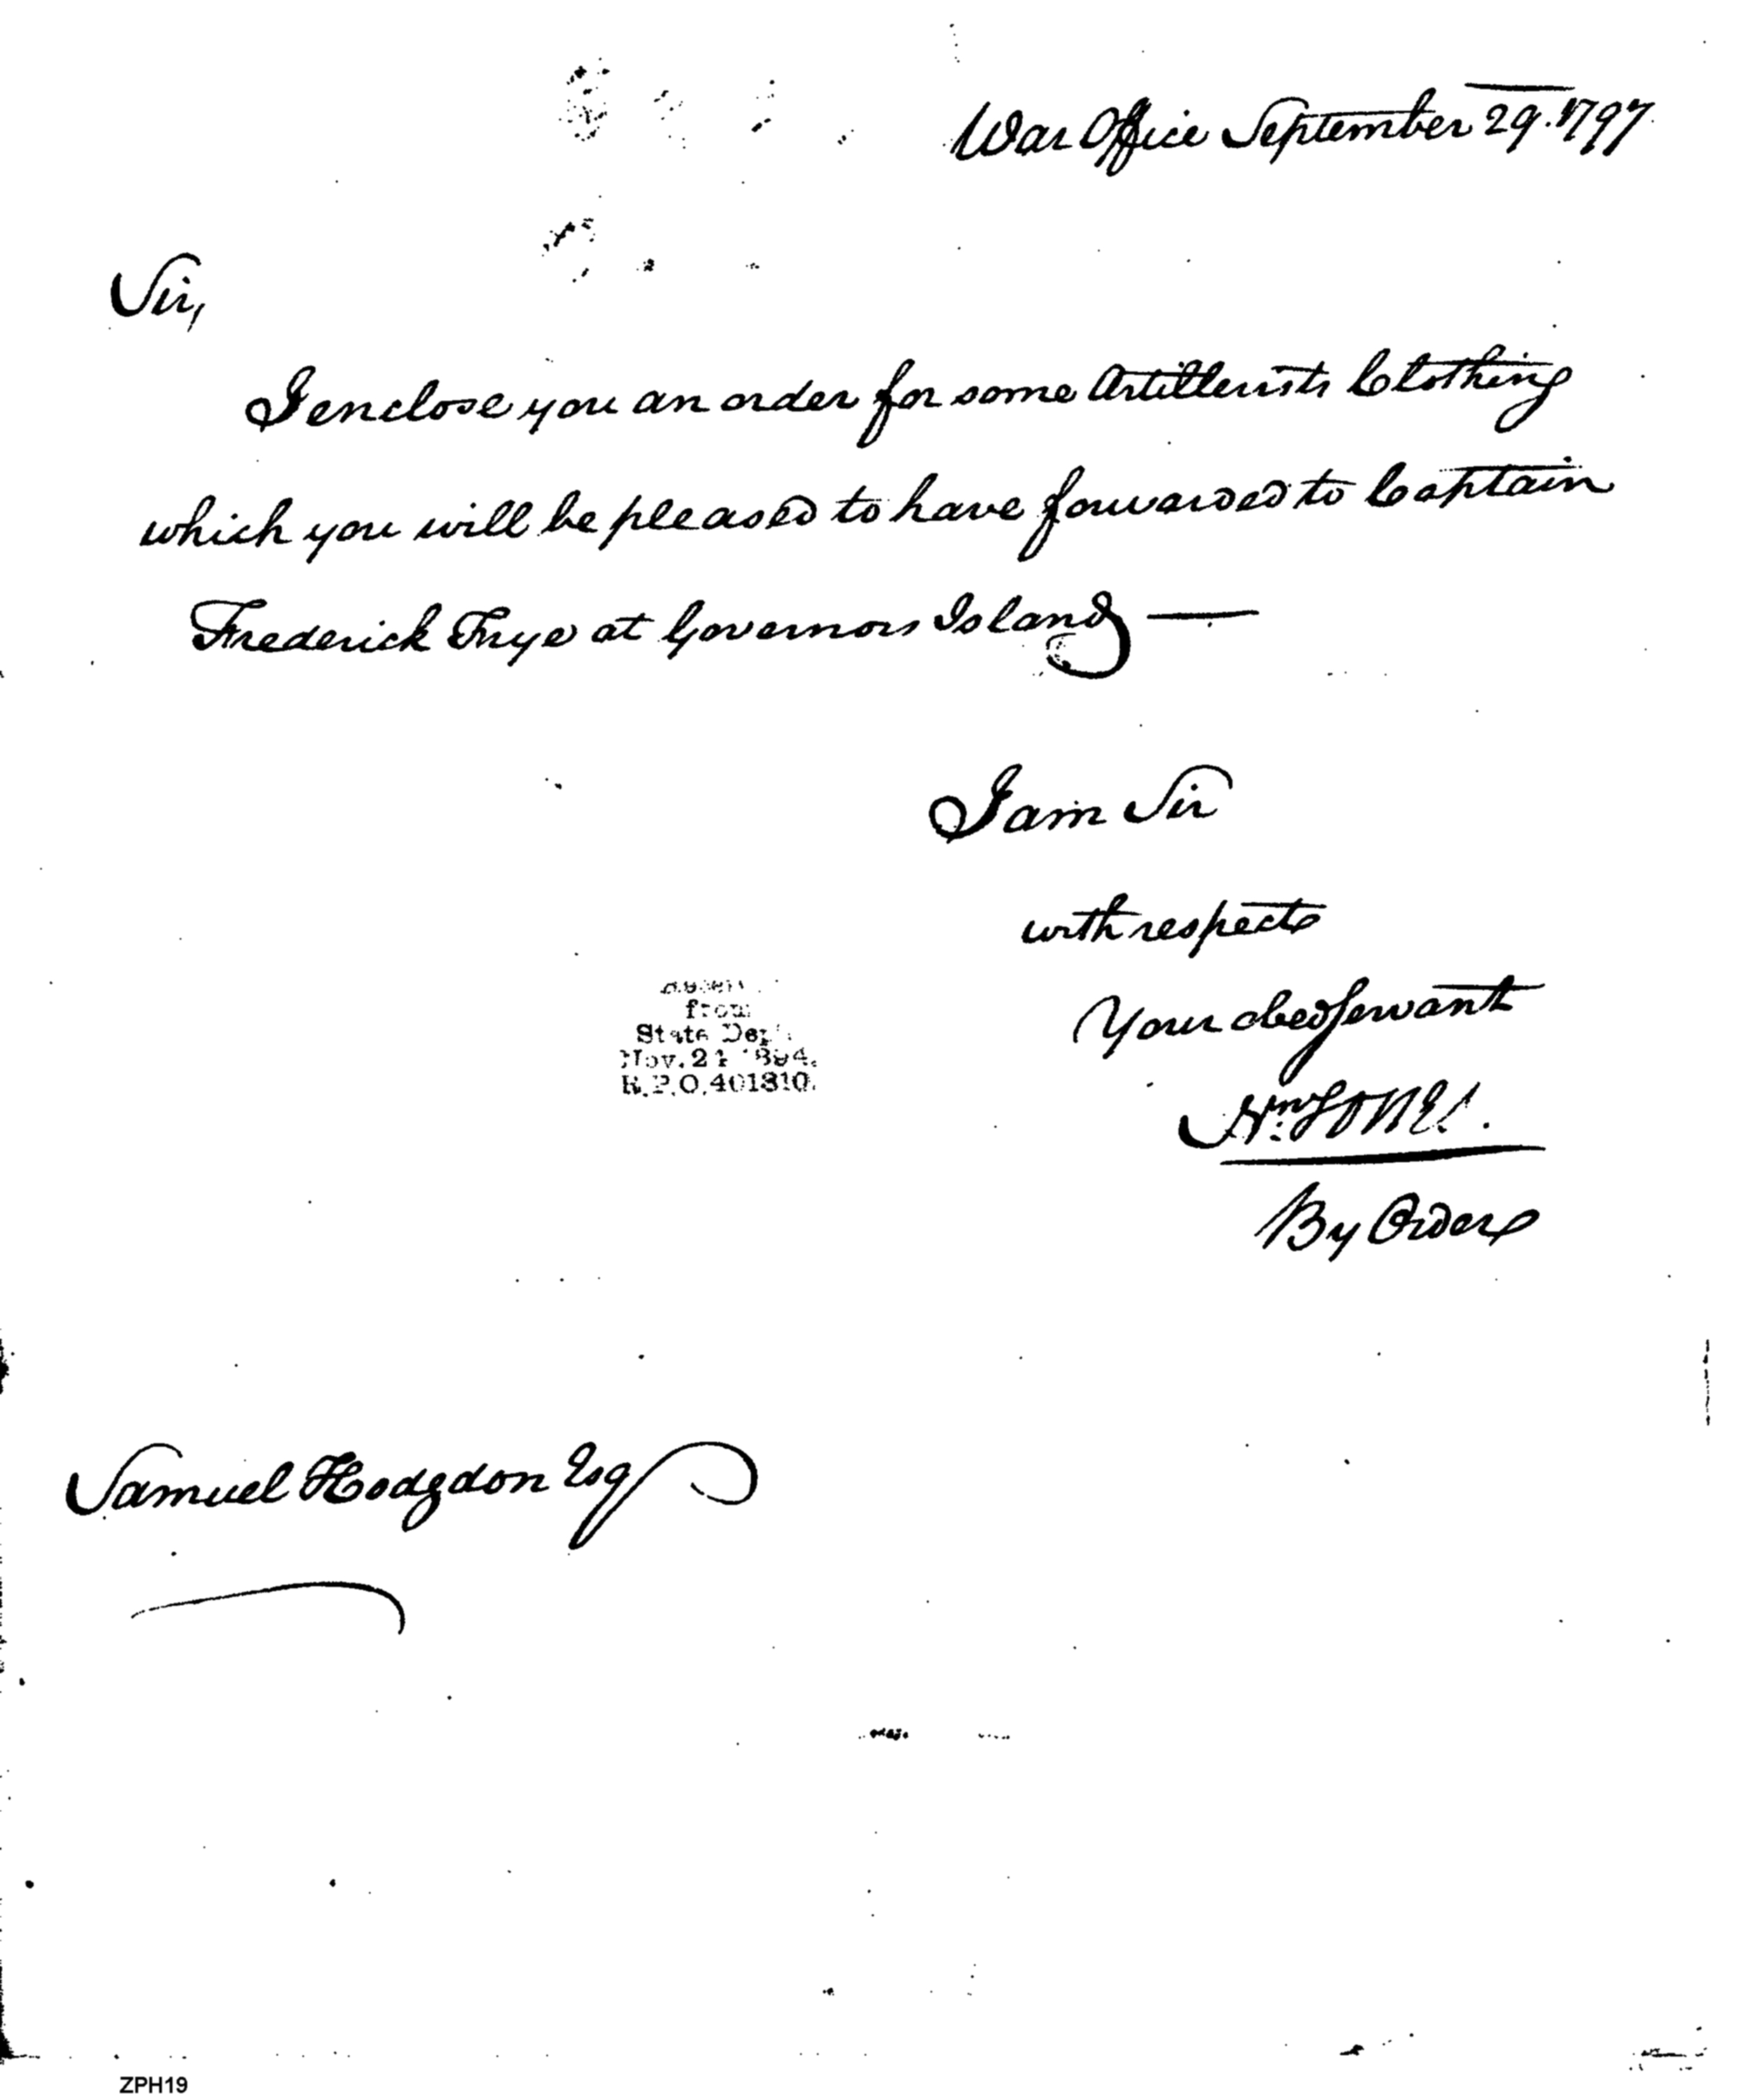 War Office September 29. 1797
Sir,
I enclose you an order for some Artillerists Clothing
which you will be pleased to have forwarded to Captain
Frederick Frye at Governors Island —
I am Sir
with respect
Your obed Servant
By Order
from
State Dep
Nov. 21 1894.
R.P.O. 401310.
Samuel Hodgdon Esq
ZPH19